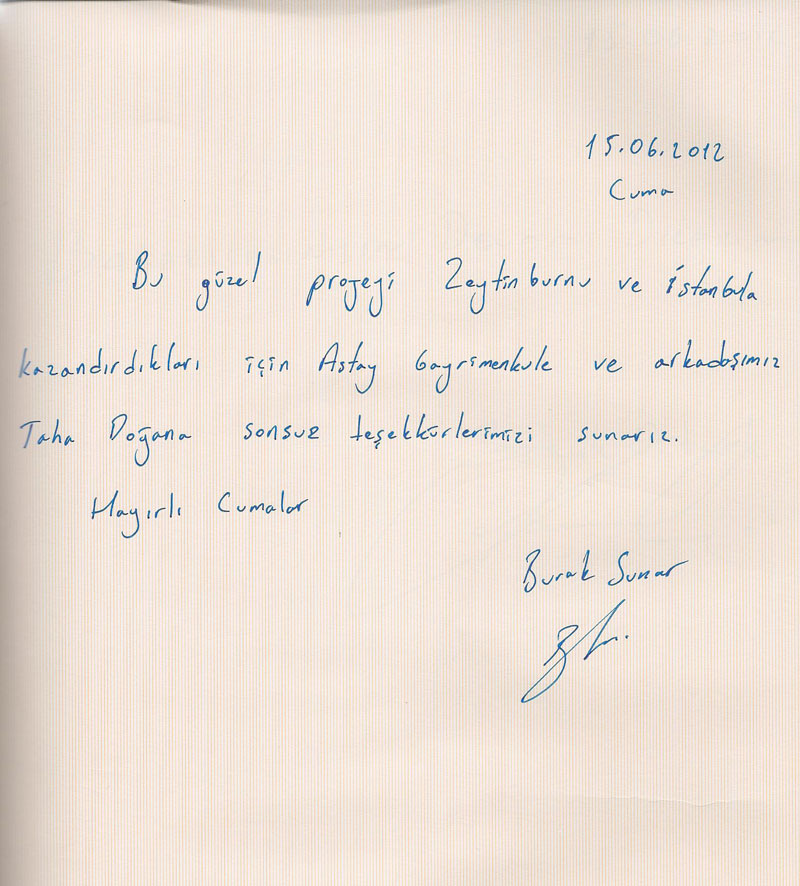 15.06.2012
Cuma
Bu güzel projeyi Zeytinburnu ve İstanbula
kazandırdıkları için Astay Gayrimenkule ve arkadaşımız
Taha Doğana sonsuz teşekkürlerimizi sunarız.
Hayırlı Cumalar
Burak Sunar